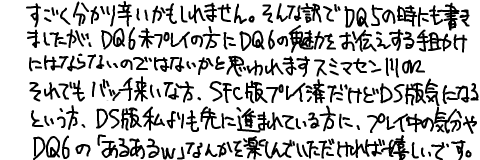 すごく分かり辛いかもしれません。そんな訳でDQ5の時にも書き
ましたが、DQ6未プレイの方にDQ6の魅力をお伝えする手掛け
にはならないのではないかと思われますスミマセン川orz
それでもバッチ来いな方、SFC版プレイ済だけどDS版気になる
という方、DS版私よりも先に進まれている方に、プレイ中の気分や
DQ6の「あるあるw」なんかを楽しんでいただければ嬉しいです。